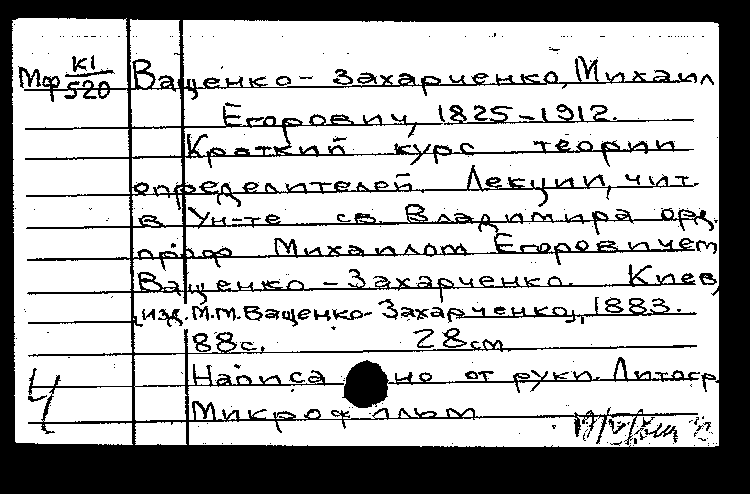 Мф К1/520 Ващенко-Захарченко, Михаил
Егорович, 1825-1912.
Краткий курс теории
определителей. Лекции, чит.
в Ун-те св. Владимира орд.
проф Михаилом Егоровичем
Ващенко-Захарченко. Киев,
изд. М.М. Ващенко-Захарченко, 1883.
88с. 28см
Написа но от руки. Литогр.
Микроф льм
Ч